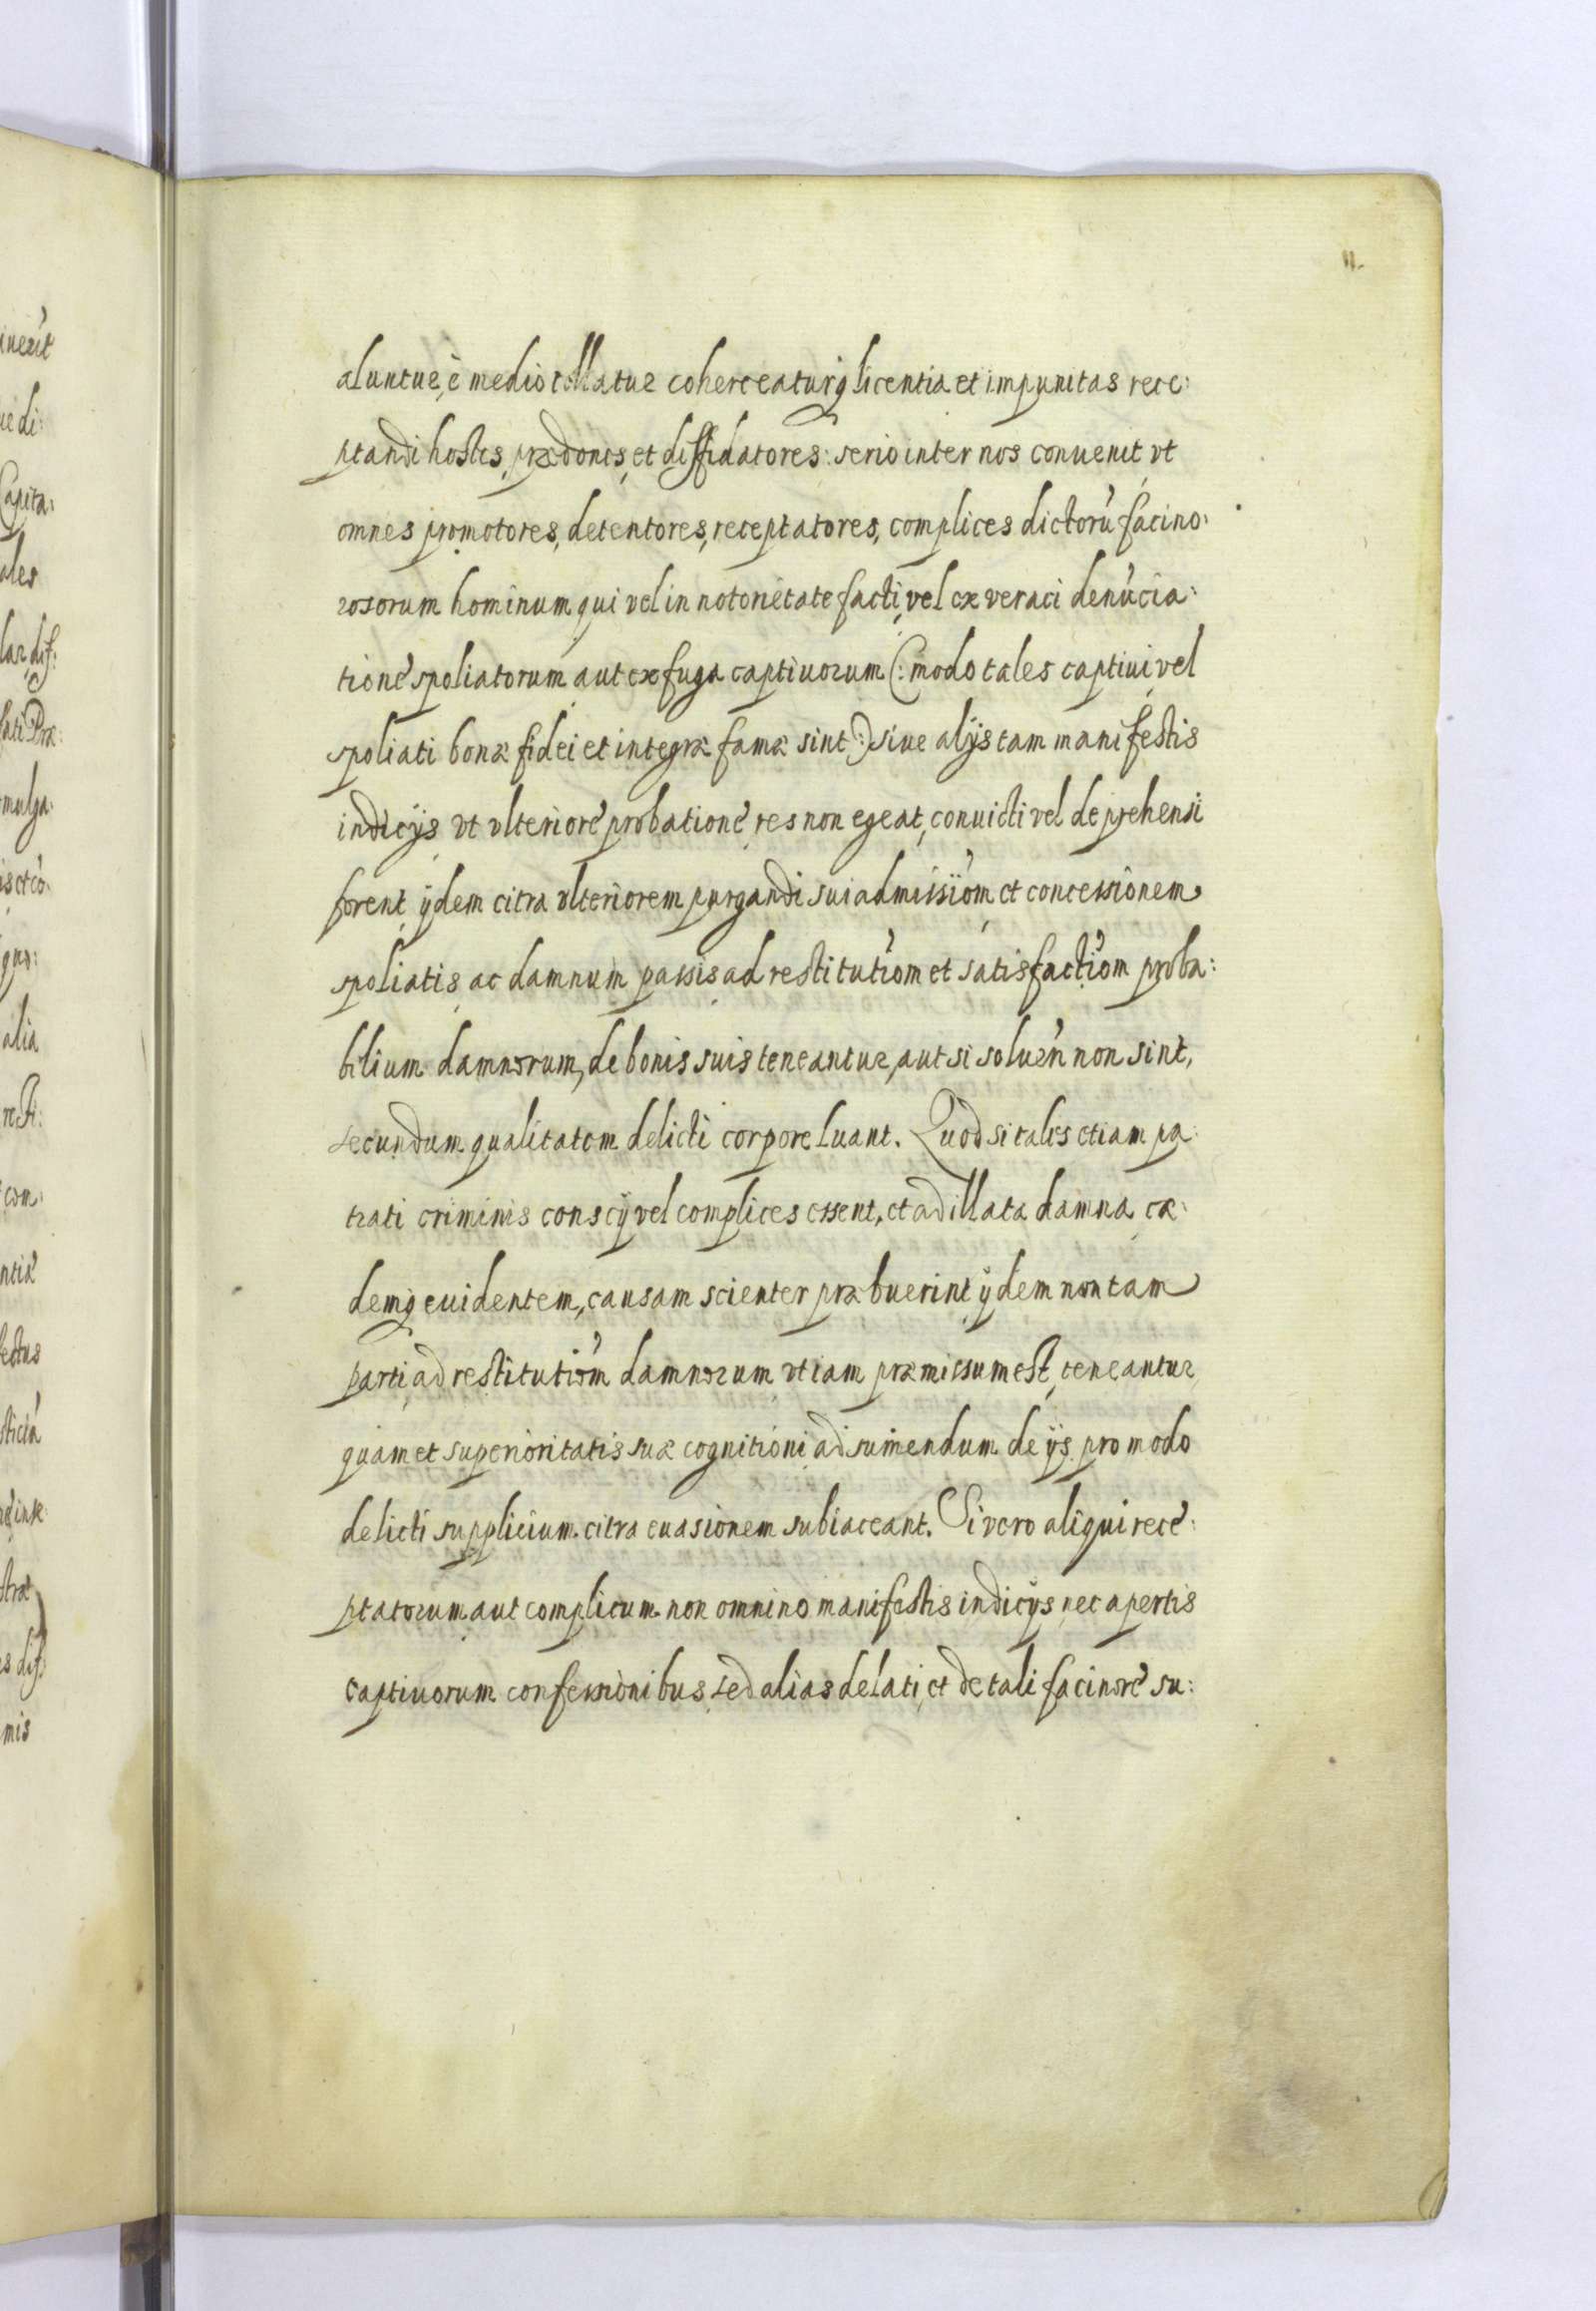 11.
aluntur, è medio tollatur coherceaturq́ licentia et impunitas rece:
ptandi hostes, prædones, et diffidatores: serio inter nos conuenit, vt
omnes promotores, detentores, receptatores, complices dictorū facino:
rosorum hominum, qui vel in notorietate facti, vel ex veraci denūcia:
tionē spoliatorum, aut ex fuga captiuorum (: modo tales captiui, vel
spoliati bonæ fidei et integræ famæ sint :) siue alijs tam manifestis
indicijs vt vlteriorē probationē, res non egeat, conuicti vel deprehensi
forent, ijdem citra vlteriorem purgandi sui admissiōm et concessionem,
spoliatis, ac damnum passis ad restitutiōm et satisfactiōm proba:
bilium damnorum, de bonis suis teneantur, aut si soluēn non sint,
secundum qualitatem delicti corpore luant. Quòd si tales etiam pa:
trati criminis conscij vel complices essent, et ad illata damna, cæ:
demq́ euidentem, causam scienter præbuerint, ijdem non tam
parti, ad restitutiōm damnorum vt iam præmissum est, teneantur,
quam et superioritatis suæ cognitioni, ad sumendum de ijs pro modo
delicti supplicium, citra euasionem subiaceant. Si vero aliqui rece:
ptatorum aut complicum, non omnino manifestis indicijs, nec apertis
captiuorum confessionibus, sed alias delati, et de tali facinorē su:
inerīt
ue di:
Capita:
ales
lar, dif:
fati Præ:
mulga:
is et cō:
quo:
alia
resti:
com:
ntiæ
lectus
stictā
inte
stræ
s dif:
mis